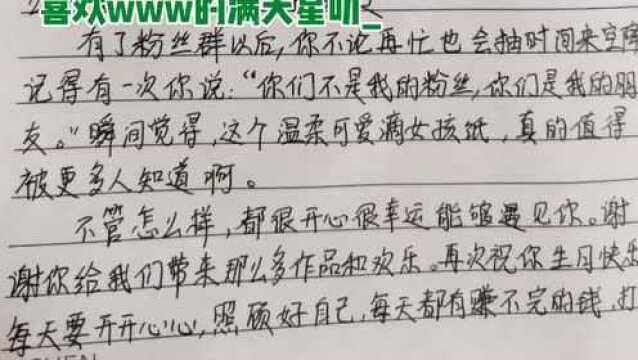 喜欢www的满天星叭_
有了粉丝群以后,你不论再忙也会抽时间来空降
记得有一次你说:“你们不是我的粉丝,你们是我的朋
友。”瞬间觉得,这个温柔可爱滴女孩纸,真的值得
被更多人知道啊。
不管怎么样,都很开心很幸运能够遇见你。谢
谢你给我们带来那么多作品和欢乐。再次祝你生日快乐
每天要开开心心,照顾好自己,每天都有赚不完的钱,打